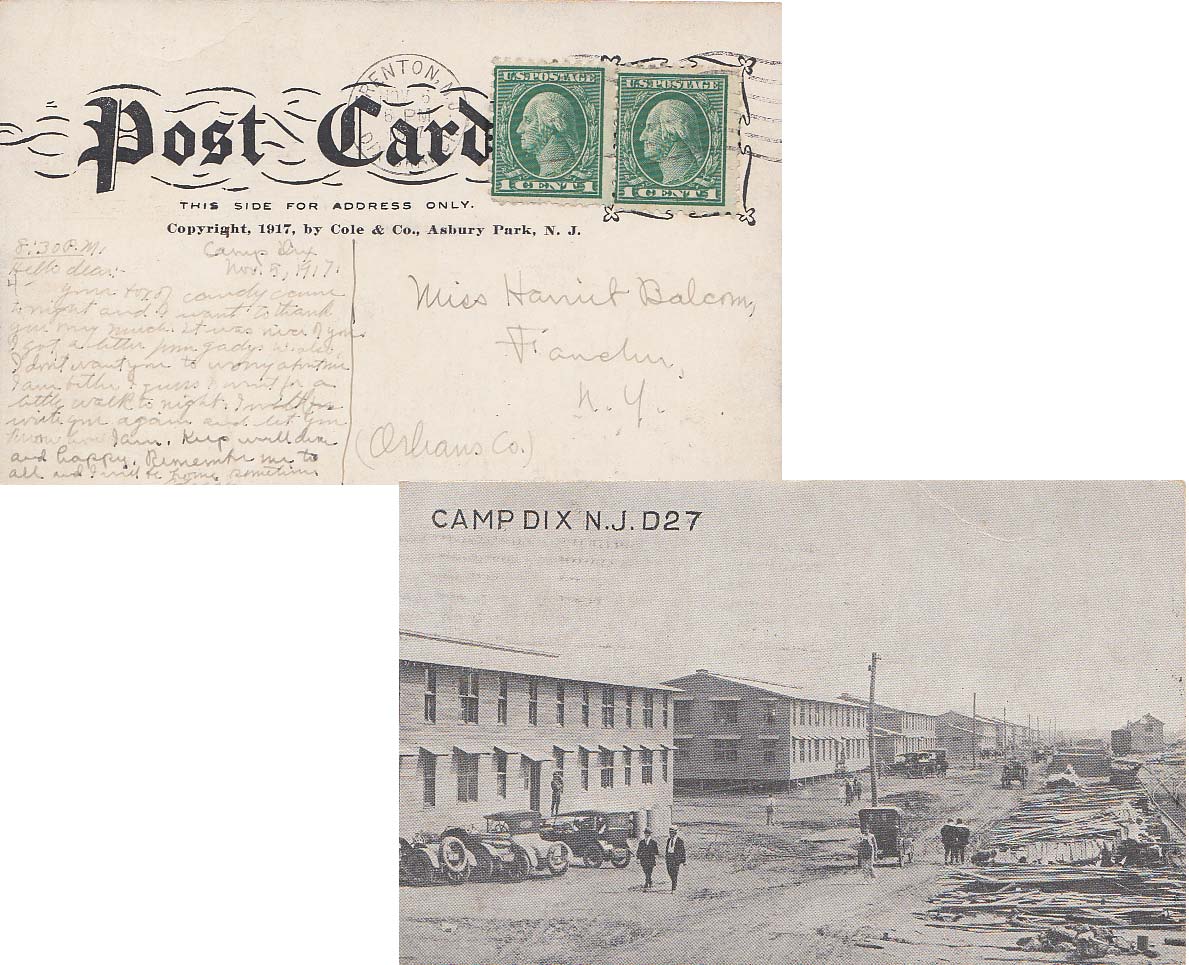 Post Card
TRENTON, N.J.
NOV 5
6 PM
1917
U.S. POSTAGE
1 CENT 1
U.S. POSTAGE
1 CENT 1
THIS SIDE FOR ADDRESS ONLY.
Copyright, 1917, by Cole & Co., Asbury Park, N. J.
8:30 P.M.
Camp Dix
Nov. 5, 1917.
Hello dear:-
Your box of candy came
to night and I want to thank
you very much. It was nice of you.
I got a letter from Gladys
I don't want you to worry about me
I am better I guess. I went for a
little walk to night. I will
write you again and let you
know how I am. Keep well dear
and happy. Remember me to
all and I will be home sometime
Miss Harriet Balcom,
Fancher,
N. Y.
(Orleans Co.)
CAMP DIX N.J. D27